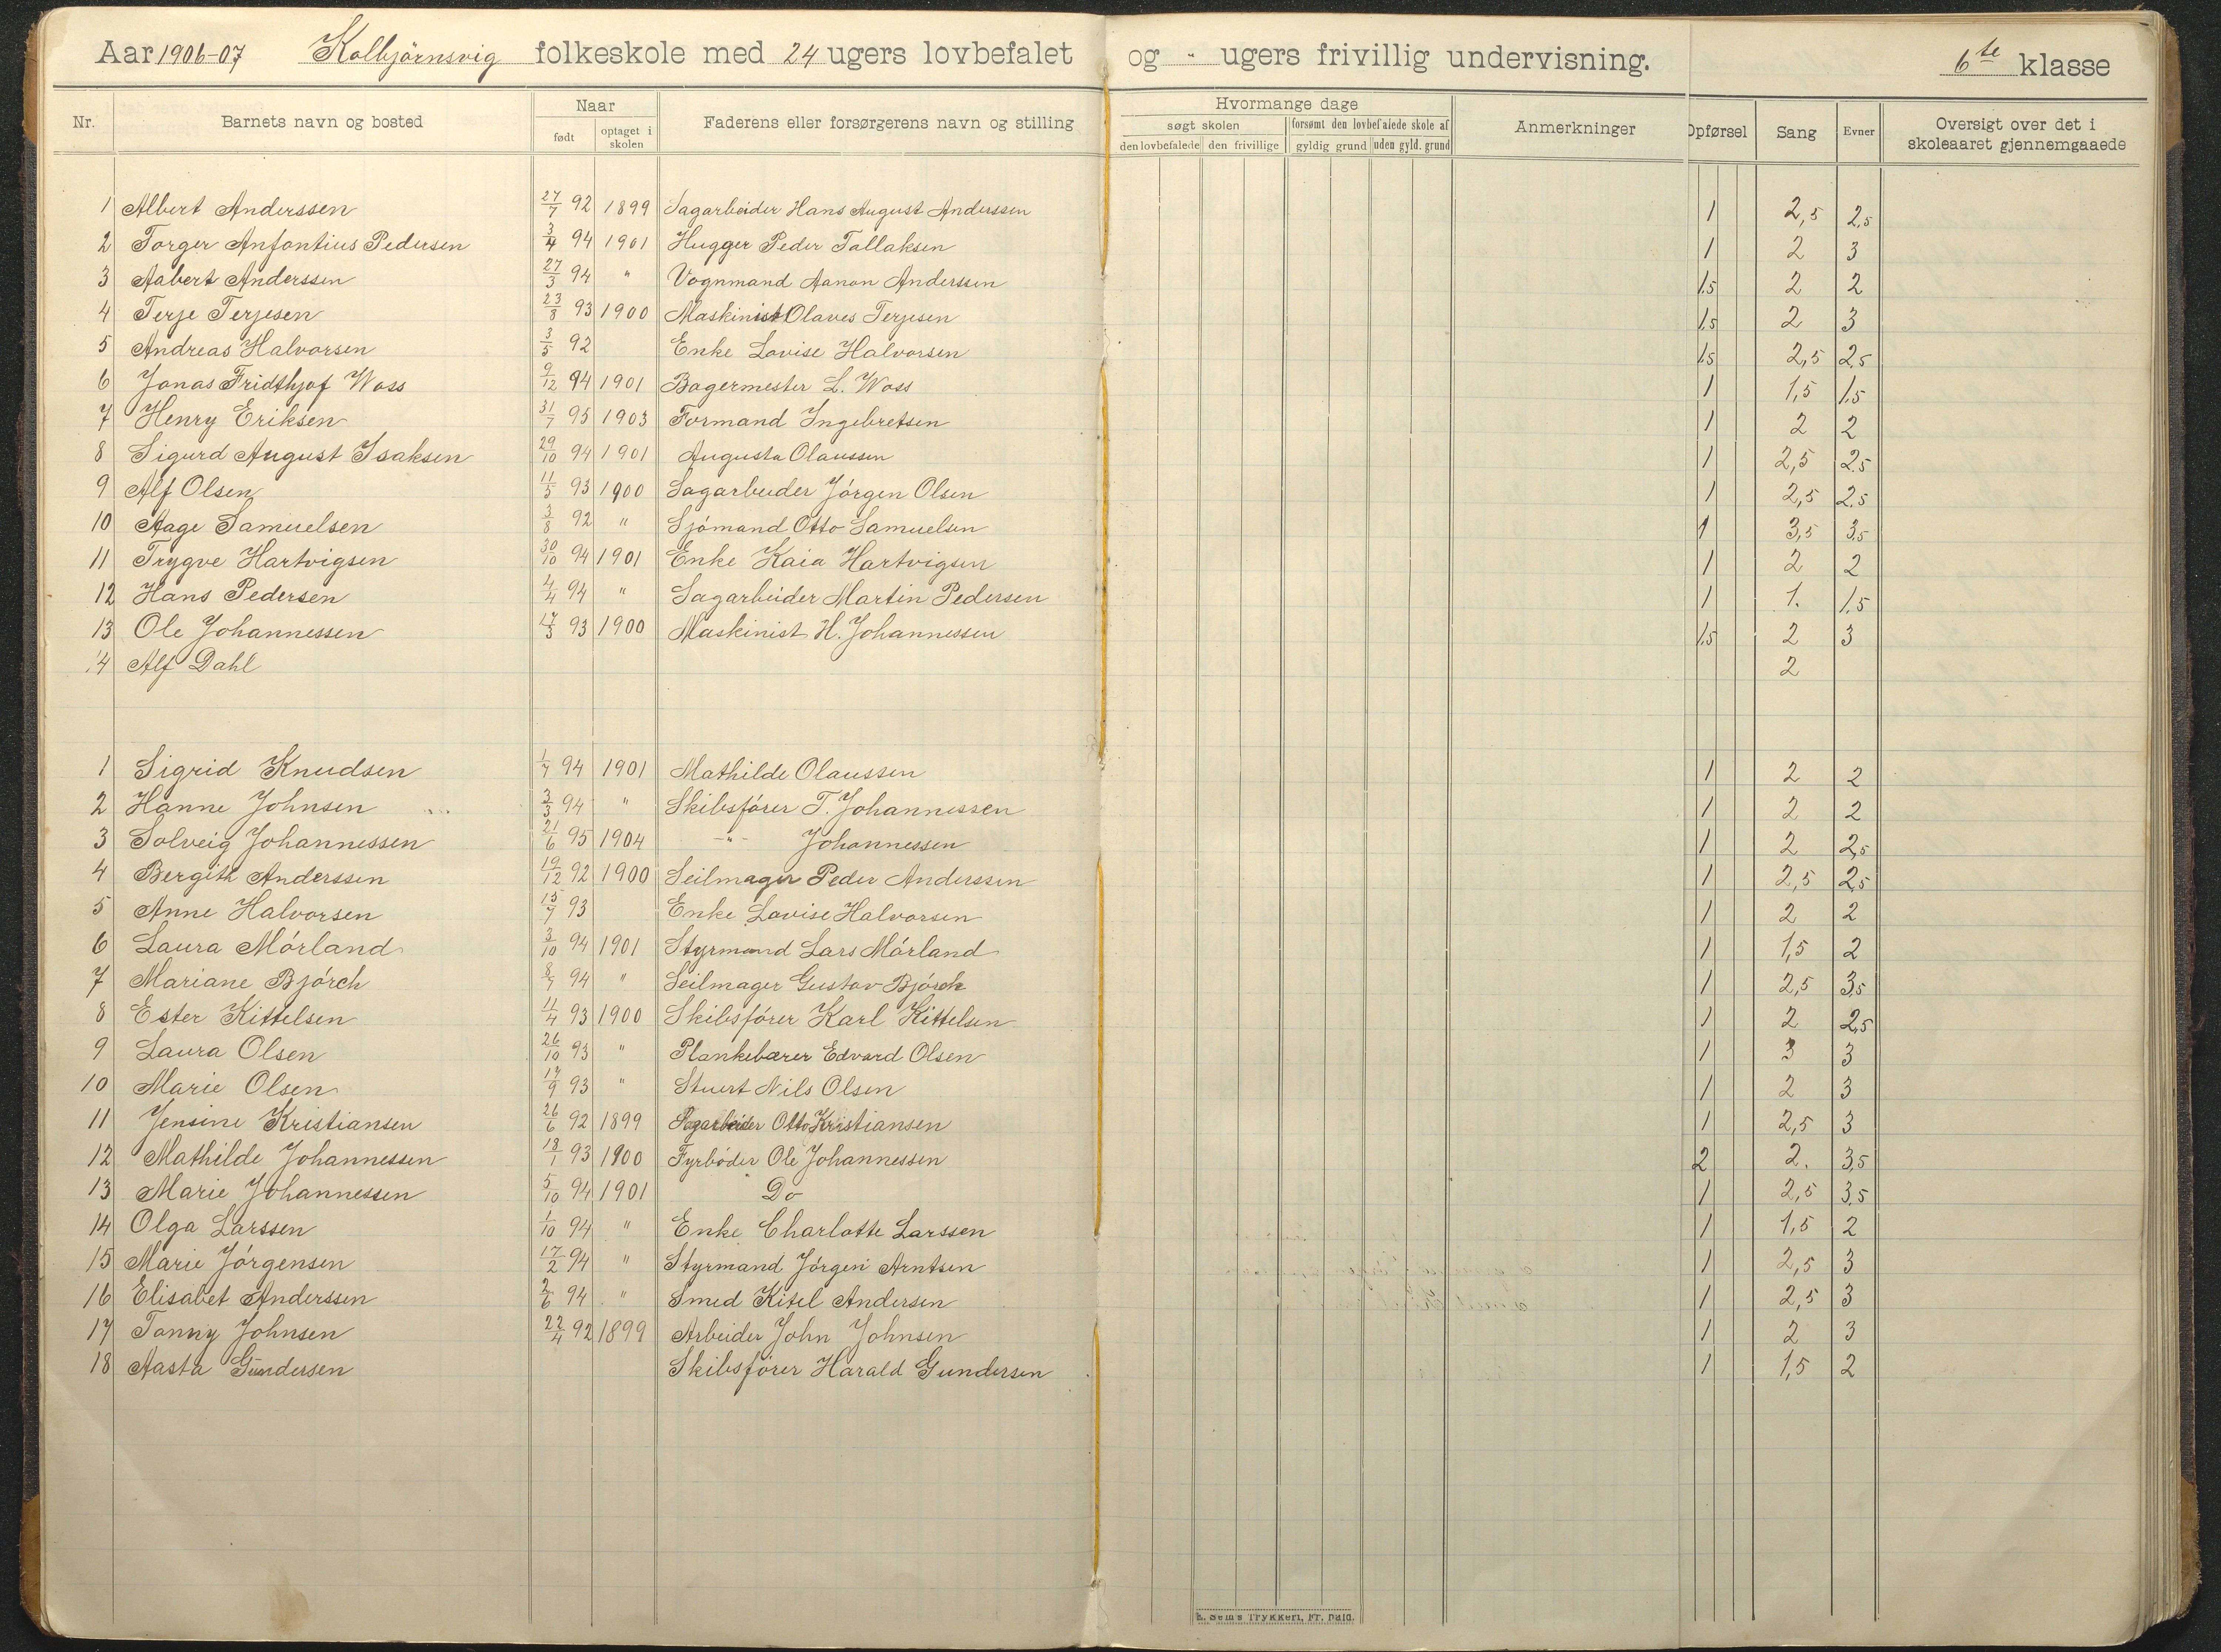 Aar 1906-07 Kolbjörnsvig folkeskole med 24 ugers lovbefalet og " ugers frivillig undervisning. 6te klasse
Nr. Barnets navn og bosted Naar født optaget i skolen Faderens eller forsørgerens navn og stilling Hvormange dage søgt skolen den lovbefalede den frivillige forsømt den lovbefalede skole af gyldig grund uden gyld. grund Anmerkninger Opførsel Sang Evner Oversigt over det i skoleaaret gjennemgaaede
1 Albert Anderssen 27/7 92 1899 Sagarbeider Hans August Anderssen 1 2,5 2,5
2 Torger Anfontius Pedersen 3/4 94 1901 Hugger Peder Tallaksen 1 2 3
3 Aabert Anderssen 27/3 94 " Vognmand Aanon Anderssen 1,5 2 2
4 Terje Terjesen 23/8 93 1900 Maskinist Olaves Terjesen 1,5 2 3
5 Andreas Halvorsen 3/5 92 Enke Lovise Halvorsen 1,5 2,5 2,5
6 Jonas Fridthjof Woss 9/12 94 1901 Bagermester L. Woss 1 1,5 1,5
7 Henry Eriksen 31/7 95 1903 Formand Ingebretsen 1 2 2
8 Sigurd August Isaksen 29/10 94 1901 Augusta Olaussen 1 2,5 2,5
9 Alf Olsen 11/5 93 1900 Sagarbeider Jörgen Olsen 1 2,5 2,5
10 Aage Samuelsen 3/8 92 " Sjömand Otto Samuelsen 1 3,5 3,5
11 Trygve Hartvigsen 30/10 94 1901 Enke Kaia Hartvigsen 1 2 2
12 Hans Pedersen 4/4 94 " Sagarbeider Martin Pedersen 1 1. 1,5
13 Ole Johannessen 17/3 93 1900 Maskinist H. Johannessen 1,5 2 3
14 Alf Dahl 2
1 Sigrid Knudsen 1/7 94 1901 Mathilde Olaussen 1 2 2
2 Hanne Johnsen 3/3 94 " Skibsförer T. Johannessen 1 2 2
3 Solveig Johannessen 21/6 95 1904 -"- Johannessen 1 2 2,5
4 Bergith Anderssen 19/12 92 1900 Seilmager Peder Anderssen 1 2,5 2,5
5 Anne Halvorsen 15/9 93 Enke Lovise Halvorsen 1 2 2
6 Laura Mörland 3/10 94 1901 Styrmand Lars Mörland 1 1,5 2
7 Mariane Björch 8/7 94 " Seilmager Gustav Björch 1 2,5 3,5
8 Ester Kittelsen 11/4 93 1900 Skibsförer Karl Kittelsen 1 2 2,5
9 Laura Olsen 26/10 93 " Plankebærer Edvard Olsen 1 3 3
10 Marie Olsen 17/9 93 " Stuert Nils Olsen 1 2 3
11 Jensine Kristiansen 26/6 92 1899 Sagarbeider Otto Kristiansen 1 2,5 3
12 Mathilde Johannessen 18/1 93 1900 Fyrböder Ole Johannessen 2 2. 3,5
13 Marie Johannessen 5/10 94 1901 Do 1 2,5 3,5
14 Olga Larssen 1/10 94 " Enke Charlotte Larssen 1 1,5 2
15 Marie Jörgensen 17/2 94 " Styrmand Jörgen Arntsen 1 2,5 3
16 Elisabet Anderssen 2/6 94 " Smed Kitel Andersen 1 2,5 3
17 Tonny Johnsen 22/4 92 1899 Arbeider John Johnsen 1 2 3
18 Aasta Gundersen Skibsförer Harald Gundersen 1 1,5 2
Trykkeri, Fr. hald.